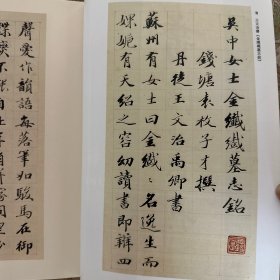 吳中女士金纖纖墓志銘
錢塘袁枚子才撰
丹徒王文治禹卿書
蘇州有女士曰金纖〻名逸生而
婐姽有天紹之容幼讀書即辨四
聲愛作韻語每落筆如駿馬在御